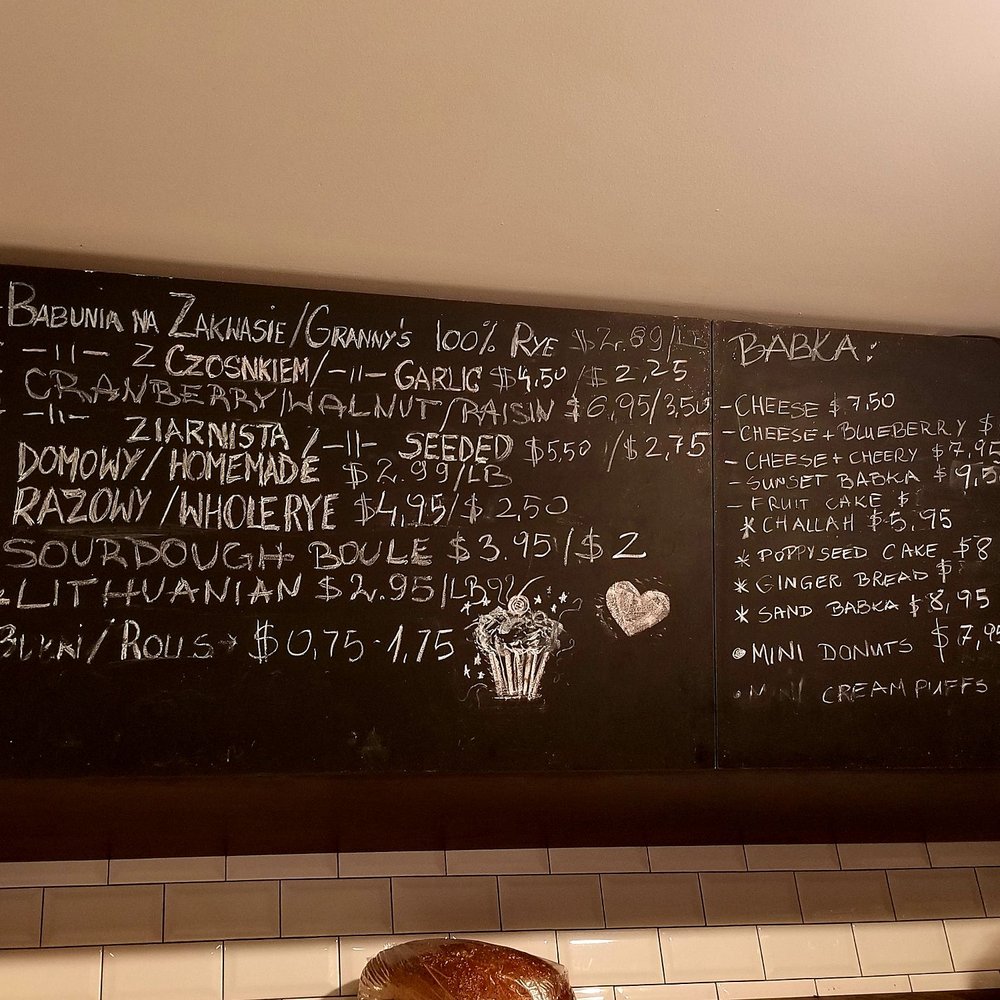 BABUNIA NA ZAKWASIE/GRANNY'S 100% RYE $2.89/LB
-11- Z CZOSNKIEM/-11- GARLIC $4,50/$2,25
CRANBERRY/WALNUT/RAISIN $6,95/3,50
-11- ZIARNISTA/-11- SEEDED $5,50/$2,75
DOMOWY/HOMEMADE $2.99/LB
RAZOWY/WHOLE RYE $4,95/$2,50
SOURDOUGH BOULE $3.95/$2
LITHUANIAN $2.95/LB
ROLLS → $0,75-1,75
BABKA:
- CHEESE $7,50
- CHEESE + BLUEBERRY $
- CHEESE + CHEERY $7,95
- SUNSET BABKA $9,5
- FRUIT CAKE $
* CHALLAH $5,95
* POPPYSEED CAKE $8
* GINGER BREAD $
* SAND BABKA $8,95
• MINI DONUTS $7,95
• MINI CREAM PUFFS